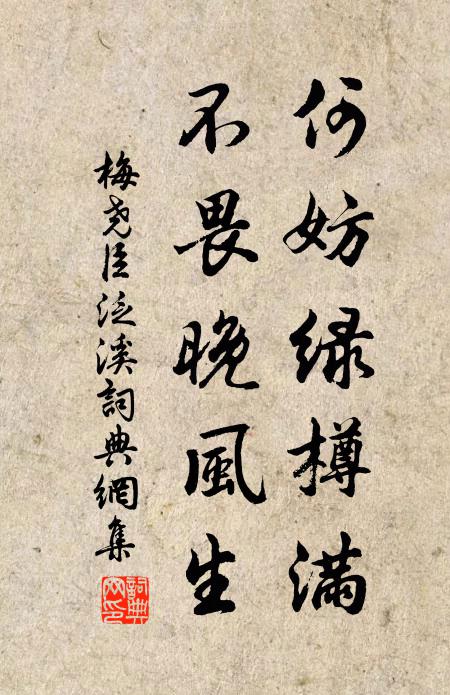 何妨绿樽满
不畏晚風生
梅尧臣泛溪詞典網集
詞典網印